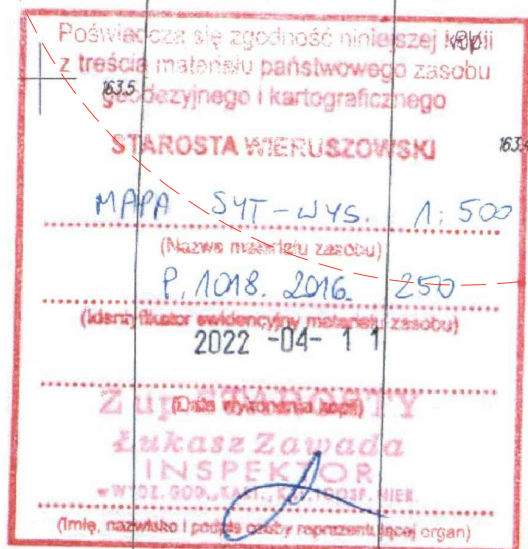 Poświadcza się zgodność niniejszej kopii
z treścią materiału państwowego zasobu
163.5
geodezyjnego i kartograficznego
STAROSTA WIERUSZOWSKI
163.4
MAPA SYT-WYS. 1:500
(Nazwa materiału zasobu)
P.1018.2016. 250
(Identyfikator ewidencyjny materiału zasobu)
2022 -04- 11
(Data wykonania kopii)
Z up. STAROSTY
Łukasz Zawada
INSPEKTOR
(Imię, nazwisko i podpis osoby reprezentującej organ)